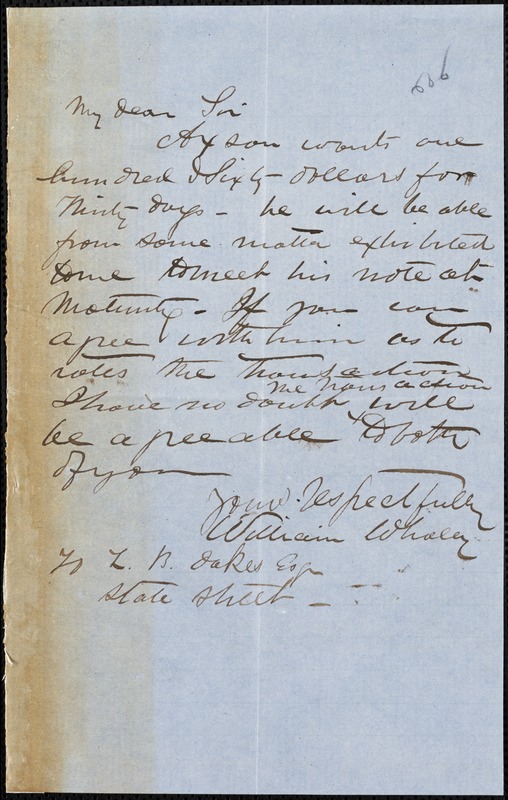 666
My dear Sir
Axson wants one
hundred & Sixty dollars for
Ninety days - he will be able
from some matter exhibited
to me to meet his note at
Maturity - If you can
agree with him as to
rates the transaction
the transaction
I have no doubt will
be agreeable to both
of you
Yours Respectfully
William Whaley
To Z. B. Oakes Esqr
State Street -